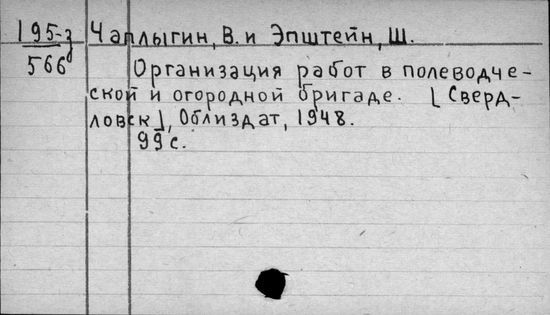 195-3 Чаплыгин, В. и Эпштейн, Ш.
566
Организация работ в полеводче-
ской и огородной бригаде. [Сверд-
ловск], Облиздат, 1948.
99 с.